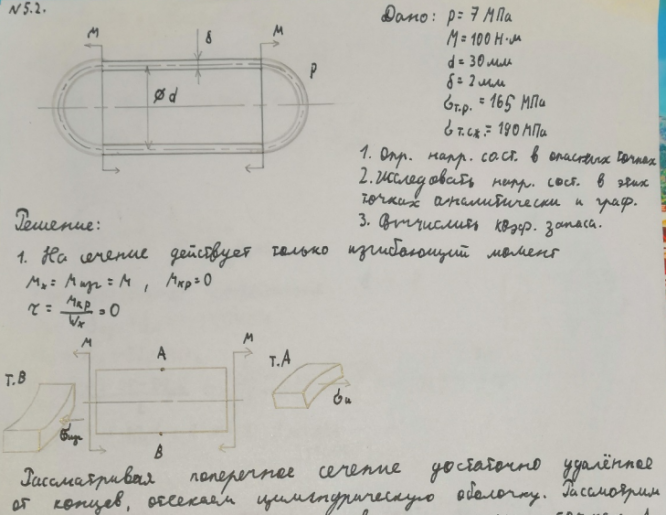 №5.2.
Дано: p = 7 МПа
M = 100 Н·м
d = 30 мм
δ = 2 мм
σт.р. = 165 МПа
σт.сж. = 190 МПа
1. Опр. напр. сост. в опасных точках
2. Исследовать напр. сост. в этих
точках аналитически и граф.
3. Вычислить коэф. запаса.
M
δ
M
p
Ød
Решение:
1. На сечение действует только изгибающий момент
Mx = Mизг = M , Mкр = 0
τ = Mкр/Wx = 0
M
A
M
т. A
т. B
σи
σизг
B
Рассматривая поперечное сечение достаточно удалённое
от концов, отсекаем цилиндрическую оболочку. Рассмотрим